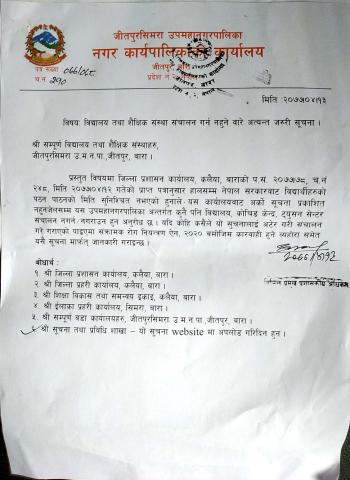 जीतपुरसिमरा उपमहानगरपालिका
नगर कार्यपालिकाको कार्यालय
जीतपुर, बारा
प्रदेश नं. २, नेपाल
पत्र संख्या
च.नं. २९०
मिति :२०७७/०४/१३
विषय: विद्यालय तथा शैक्षिक संस्था संचालन गर्न नहुने वारे अत्यन्त जरुरी सूचना ।
श्री सम्पूर्ण विद्यालय तथा शैक्षिक संस्थाहरु,
जीतपुरसिमरा उ.म.न.पा.,जीतपुर, बारा ।
प्रस्तुत विषयमा जिल्ला प्रशासन कार्यालय, कलैया, बाराको प.सं. २०७७/७८, च.नं
२४८, मिति २०७७/०४/१२ गतेको प्राप्त पत्रानुसार हालसम्म नेपाल सरकारवाट विद्यार्थीहरुको
पठन पाठनको मिति सुनिश्चित नभएको हुनाले यस कार्यालयवाट अर्को सूचना प्रकाशित
नहुनजेलसम्म यस उपमहानगरपालिका अन्तर्गत कुनै पनि विद्यालय, कोचिङ्ग केन्द्र, ट्युसन सेन्टर
संचालन नगर्न/नगराउन हुन अनुरोध छ । यदि कोहि कसैले यो सूचनालाई अटेर गरी संचालन
गरे गराएको पाइएमा संक्रामक रोग नियन्त्रण ऐन, २०२० बमोजिम कारवाही हुने व्यहोरा समेत
यसै सूचना मार्फत जानकारी गराइन्छ ।
बोधार्थ :
१. श्री जिल्ला प्रशासन कार्यालय, कलैया, बारा ।
२. श्री जिल्ला प्रहरी कार्यालय, कलैया, बारा ।
३. श्री शिक्षा विकास तथा समन्वय इकाइ, कलैया, बारा ।
४. श्री ईलाका प्रहरी कार्यालय, सिमरा, बारा ।
५. श्री सम्पूर्ण वडा कार्यालयहरु, जीतपुरसिमरा उ.म.न.पा.,जीतपुर, बारा ।
६. श्री सूचना तथा प्रविधि शाखा – यो सूचना website मा अपलोड गरिदिन हुन ।
प्रमुख प्रशासकीय अधिकृत